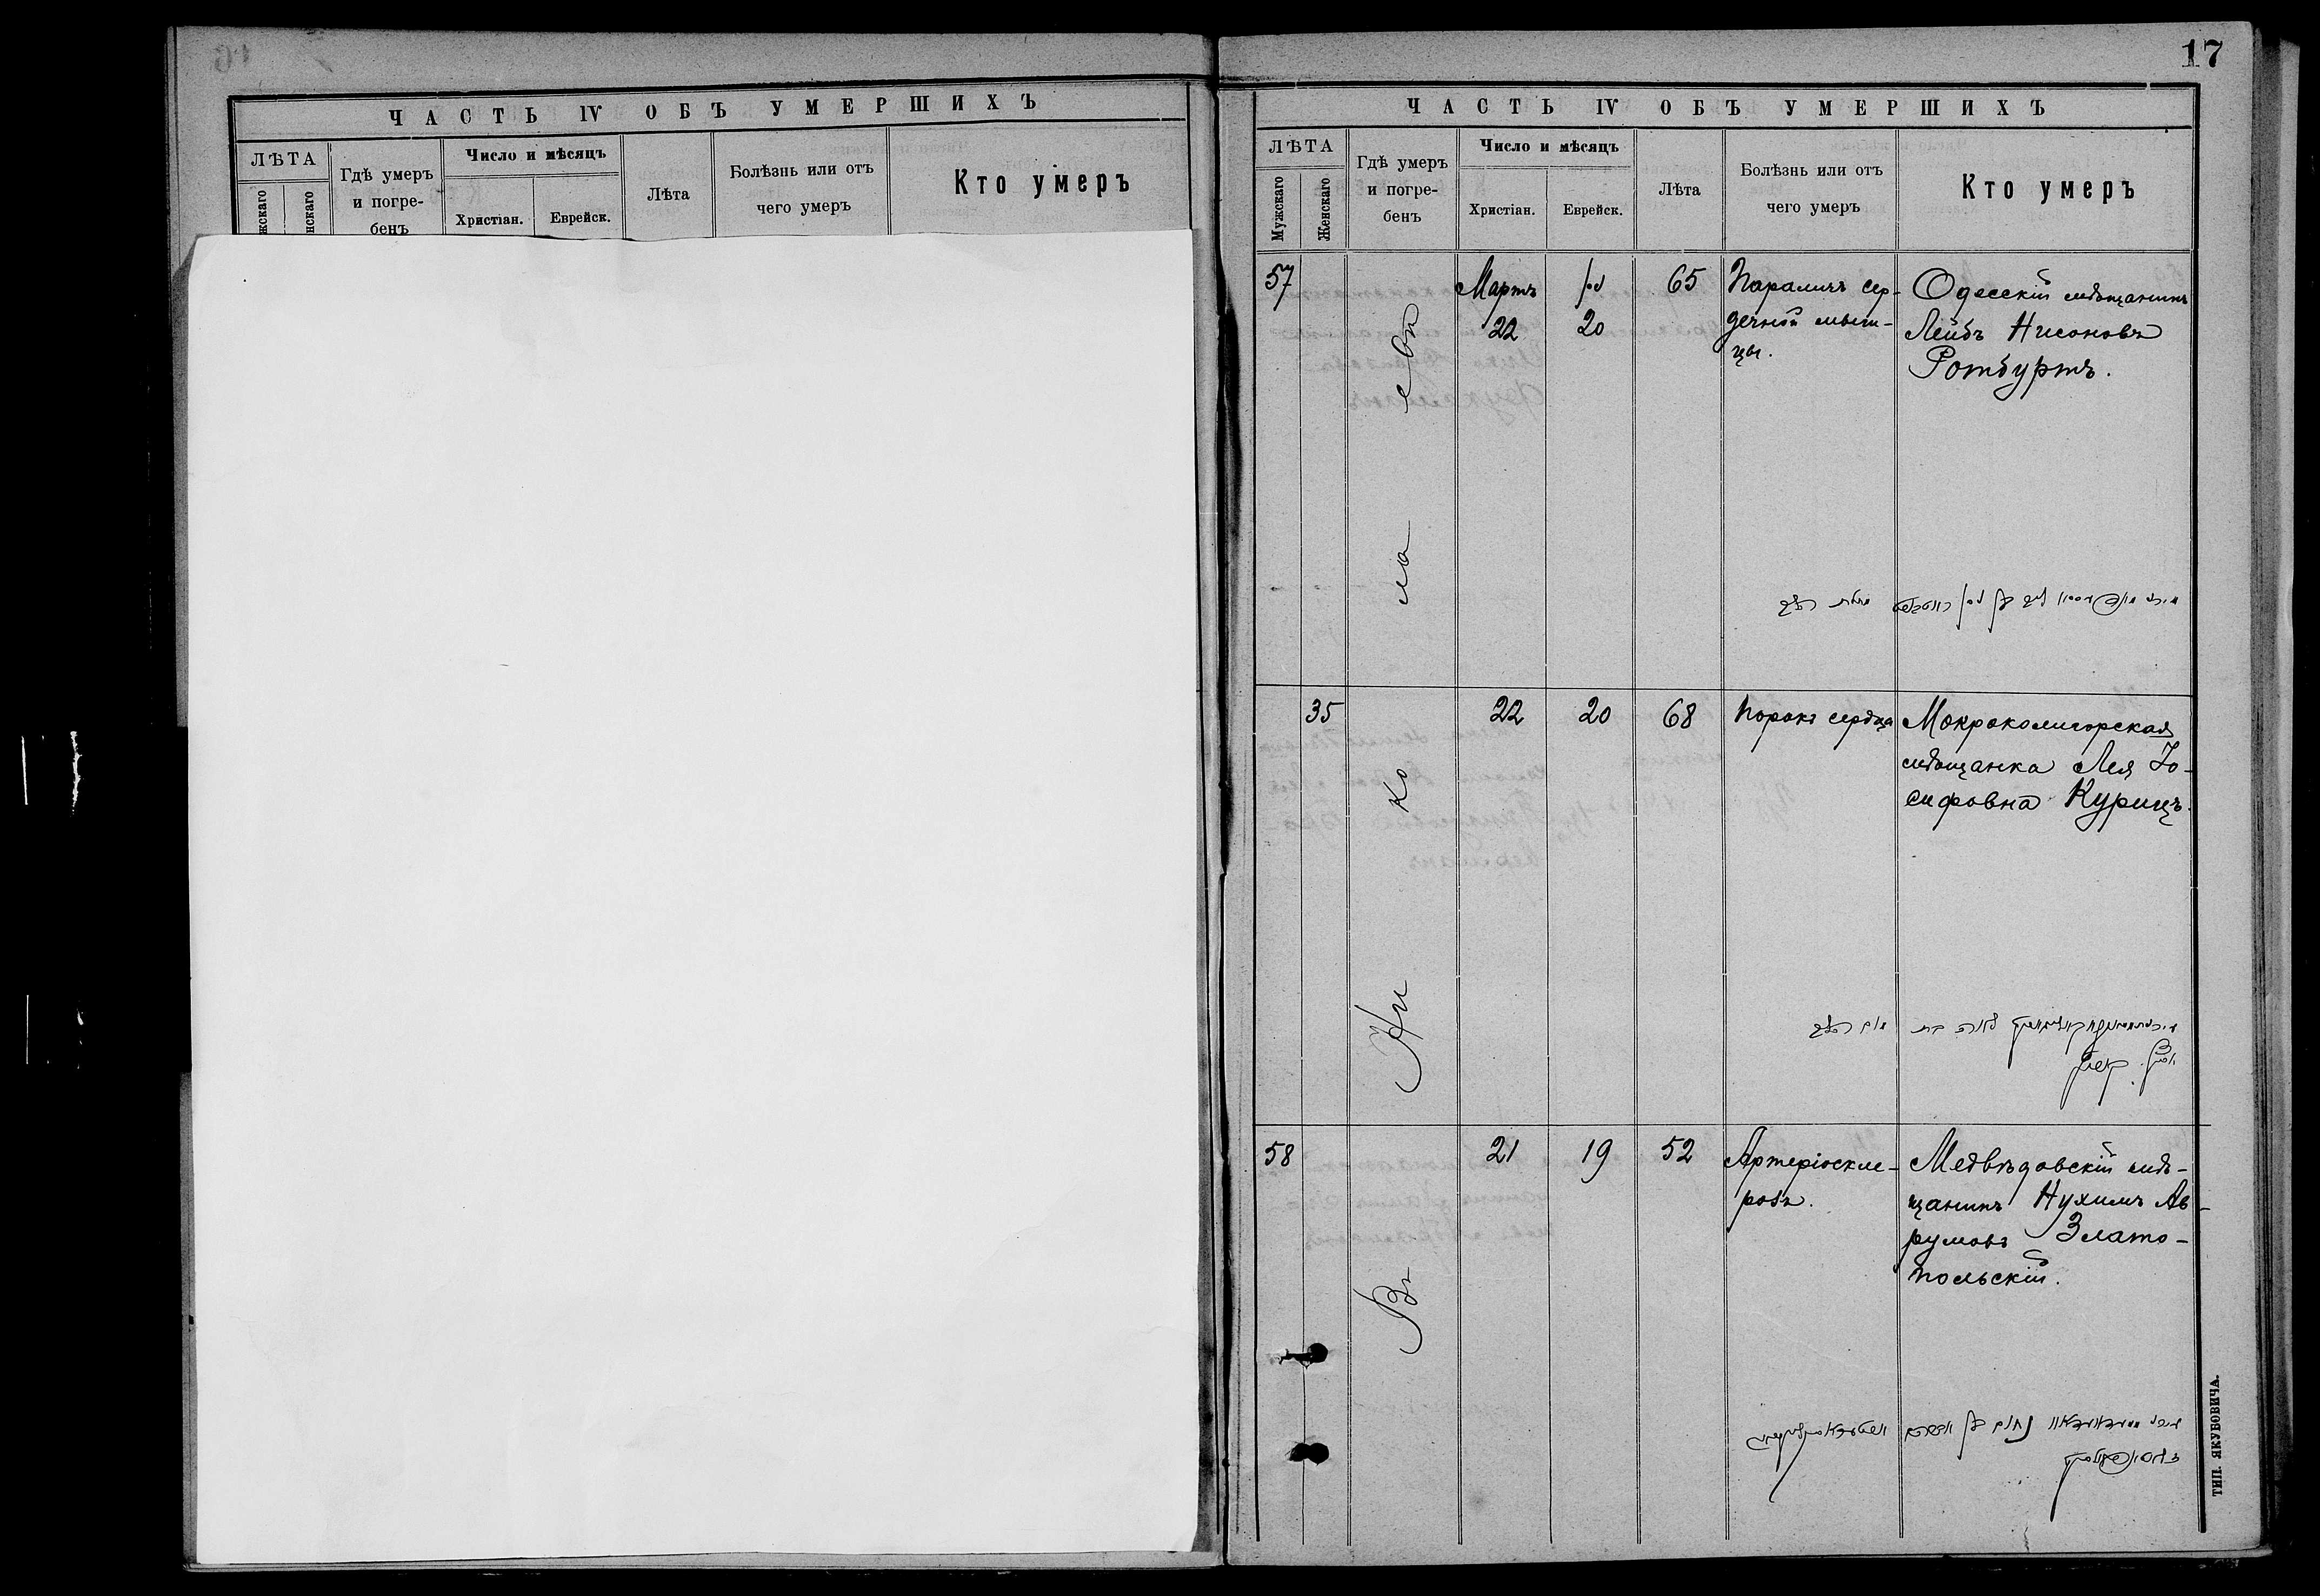 17
ЧАСТЬ IV ОБЪ УМЕРШИХЪ
ЛѢТА
Гдѣ умеръ
и погре-
бенъ
Число и мѣсяцъ
Христіан.
Еврейск.
Лѣта
Болѣзнь или отъ
чего умеръ
Кто умеръ
ЧАСТЬ IV ОБЪ УМЕРШИХЪ
ЛѢТА
Мужскаго
Женскаго
Гдѣ умеръ
и погре-
бенъ
Число и мѣсяцъ
Христіан.
Еврейск.
Лѣта
Болѣзнь или отъ
чего умеръ
Кто умеръ
Въ Николаевѣ
57
Мартъ
22
ניסן
20
65
Параличъ сер-
дечной мыш-
цы.
Одесскій мѣщанинъ
Лейбъ Нисоновъ
Ротбуртъ.
35
22
20
68
Порокъ сердца
Мокрокалигорская
мѣщанка Лея Іо-
сифовна Курицъ.
58
21
19
52
Артеріоскле-
розъ.
Медвѣдовскій мѣ-
щанинъ Нухимъ Ав-
румовъ Злато-
польскій.
ТИП. ЯКУБОВИЧА.